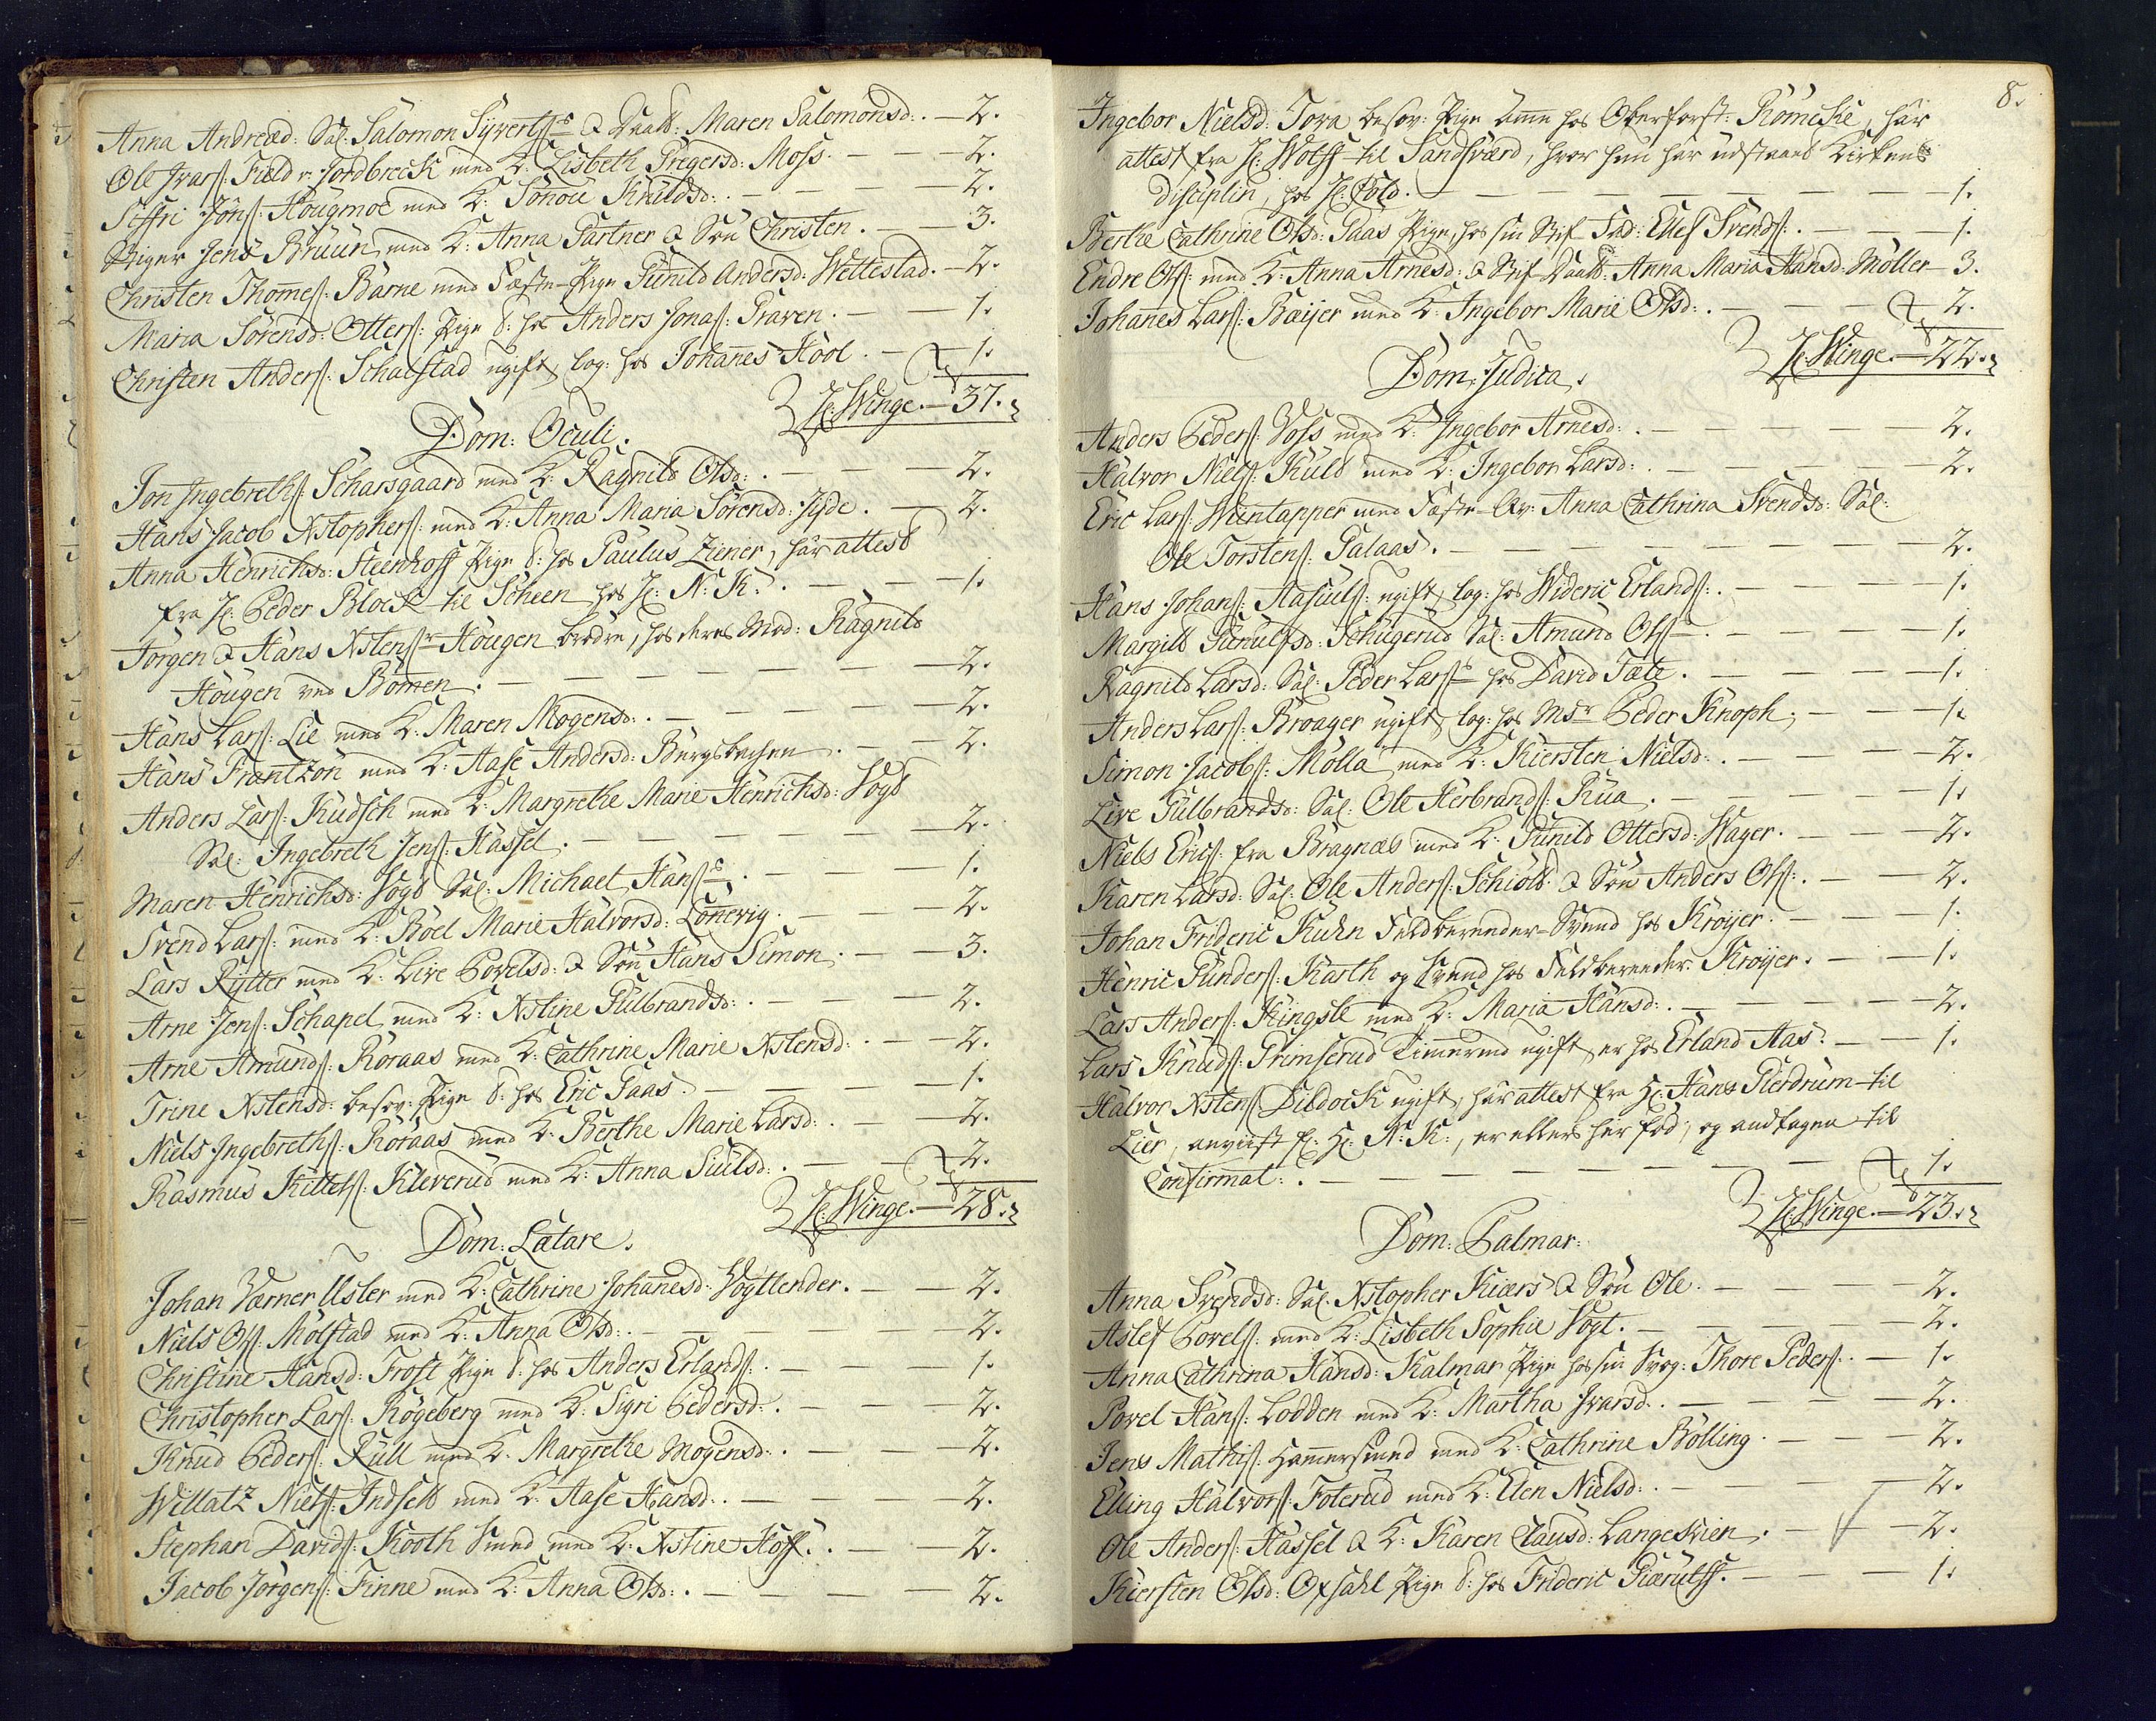 Anna Andreæd: Sal: Salomon Syverts: & Daatt: Maren Salomonsd: . — 2.
Ole Ivars: Field v. Jordbreck med K: Lisbeth Gregersd: Moss. — — 2.
Siffri Jons: Hougmoe med K: Tonou Knudsd: . — — — — 2.
Stiger Jens Bruun med K: Anna Gartner & Søn Christen. — — 3.
Christen Thomes: Barne med Fæste-Pige Gunild Andersd: Wettestad. — 2.
Maria Sørensd: Otters: Pige T: hos Anders Jonas: Graven. — — 1.
Christen Anders: Schalstad ugift, log: hos Johanes Hool. — 1.
H: Winge. — 37.
Dom: Oculi.
Jon Ingebreths: Scharsgaard med K: Ragnild Olsd: . — — — 2.
Hans Jacob Xstophers: med K: Anna Maria Sørensd: Jyde. — 2.
Anna Henrichsd: Steenhoff Pige T: hos Paulus Ziener, har attest
fra H: Peder Block til Scheen hos H: N: K: . — — — 1.
Jørgen & Hans Xstens: Hougen brødre, hos deres Mod: Ragnild
Hougen ved Bomen. — — — — — — — 2.
Hans Lars: Lie med K: Maren Mogensd: . — — — — 2.
Hans Frantzøn med K: Aase Andersd: Bergsbachen. — — 2.
Anders Lars: Kudsch med K: Margrethe Marie Henrichsd: Vogd
Sal: Ingebreth Jens: Hassel. — — — — — — 2.
Maren Henrichsd: Vogd Sal: Michael Hans: . — — — — 1.
Svend Lars: med K: Boel Marie Halvorsd: Lonevig. — — 2.
Lars Rytter med K: Live Povelsd: & Søn Hans Simon. — — 3.
Arne Jens: Schapel med K: Xstine Gulbrandsd: . — — — 2.
Arne Amunds: Roraas med K: Cathrine Marie Xstensd: . — — 2.
Trine Xstensd: besov: Pige T: hos Eric Gaas. — — — — 1.
Niels Ingebreths: Roraas med K: Berthe Marie Larsd: . — — 2.
Rasmus Kittels: Kleverud med K: Anna Siulsd: . — — 2.
H: Winge. — 28.
Dom: Lætare.
Johan Værner Usler med K: Cathrine Johanesd: Vogtlender. — — 2.
Niels Ols: Molstad med K: Anna Olsd: . — — — — 2.
Christine Hansd: Frost Pige T: hos Anders Erlands: . — — — 1.
Christopher Lars: Rogeberg med K: Sigri Pedersd: . — — — 2.
Knud Peders: Rull med K: Margrethe Mogensd: . — — — 2.
Willatz Niels: Indseld med K: Aase Hansd: . — — — — 2.
Stephan Davids: Kooth Smed med K: Xstine Hoff: . — — 2.
Jacob Jørgens: Finne med K: Anna Olsd: . — — — — 2.
8.
Ingebor Nielsd: Tora besov: Pige Amme hos Oberforst: Römcke, har
attest fra H: Wolff til Sandsværd, hvor hun har udstaaed Kirkens
disciplin, hos H: Pold. — — — — — — — 1.
Berthe Cathrine Olsd: Gaas Pige, hos sin Stif Fad: Ellef Svends: . — — 1.
Endre Ols: med K: Anna Arnesd: & Stif Daatt: Anna Maria Hansd: Møller — 3.
Johanes Lars: Baijer med K: Ingebor Marie Olsd: . — — — 2.
H: Winge. — 22.
Dom: Judica.
Anders Peders: Voss med K: Ingebor Arnesd: . — — — — — 2.
Halvor Niels: Kuld med K: Ingebor Larsd: . — — — — — 2.
Eric Lars: Wiintapper med Fæste-Qv: Anna Cathrina Svendsd: Sal:
Ole Torstens: Galaas. — — — — — — — 2.
Hans Johans: Aasuls: ugift, log: hos Wideric Erlands: . — — — 1.
Margitt Gunulfsd: Schugerud Sal: Amund Ols: — — — — 1.
Ragnild Larsd: Sal: Peder Lars: hos David Tæte. — — — — 1.
Anders Lars: Broager ugift, log: hos Msr Peder Knoph; — — — 1.
Simon Jacobs: Molla med K: Kiersten Nielsd: . — — — — 2.
Live Gulbrandsd: Sal: Ole Herbrands: Rua. — — — — 1.
Niels Erics: fra Bragnæs med K: Gunild Ottersd: Wager. — — — 2.
Karen Larsd: Sal: Ole Anders: Schiold & Søn Anders Ols: . — — 2.
Johan Frideric Kuhn Feldbereeder-Svend hos Krøyer. — — — 1.
Henric Gunders: Karth og Svend hos Feldbereeder Krøyer. — — 1.
Lars Anders: Kingste med K: Maria Hansd: . — — — — — 2.
Lars Knuds: Grimserud Timermd ugift, er hos Erland Aas. — — 1.
Halvor Xstens: Dildock ugift, har attest fra H: Hans Gierdrum til
Lier, anviist f: H: N: K:, er ellers her fød, og andtagen til
Confirmat: . — — — — — — — — 1.
H: Winge. — 23.
Dom: Palmar:
Anna Svendsd: Sal: Xstopher Kiærs & Søn Ole. — — — 2.
Aslef Povels: med K: Lisbeth Sophie Vogt. — — — — 2.
Anna Cathrina Hansd: Kalmar Pige hos sin Svog: Thore Peders: . — 1.
Povel Hans: Lodden med K: Martha Ivarsd: . — — — — 2.
Jens Mathis: Hamersmed med K: Cathrine Bølling. — — — 2.
Elling Halvors: Foterud med K: Elen Nielsd: . — — — — 2.
Ole Anders: Hassel & K: Karen Clausd: Langeskien. — — 2.
Kiersten Olsd: Opsahl Pige T: hos Frideric Giærulff. — — — 1.